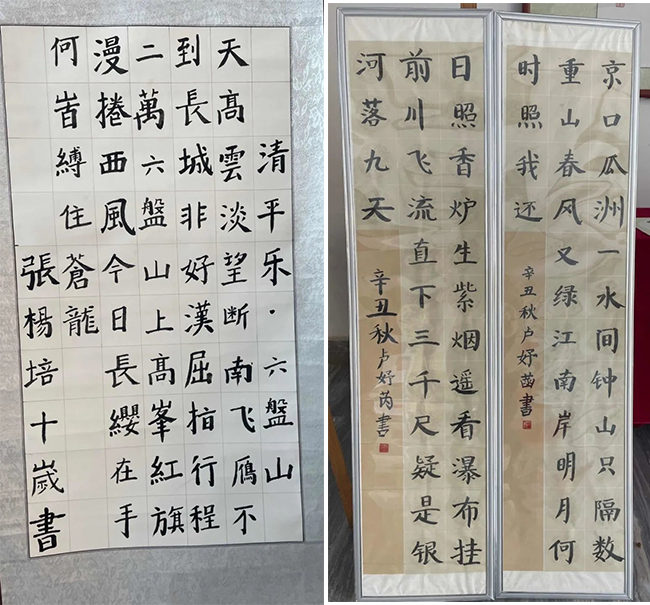 清平乐·六盤山
天髙雲淡望断南飞鴈不
到長城非好漢屈指行程
二萬六盤山上髙峯紅旗
漫捲西風今日長纓在手
何峕縛住蒼龍
張楊培十歲書
京口瓜洲一水间钟山只隔数
重山春风又绿江南岸明月何
时照我还
辛丑秋卢妤菡書
日照香炉生紫烟遥看瀑布挂
前川飞流直下三千尺疑是银
河落九天
辛丑秋卢妤芮書